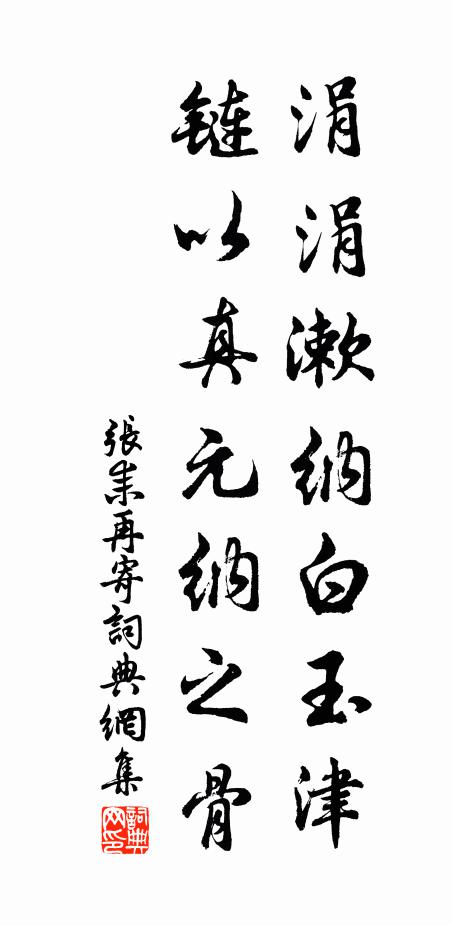 涓涓漱納白玉津
鏈以真元納之骨
張耒再寄詞典網集
詞典網印